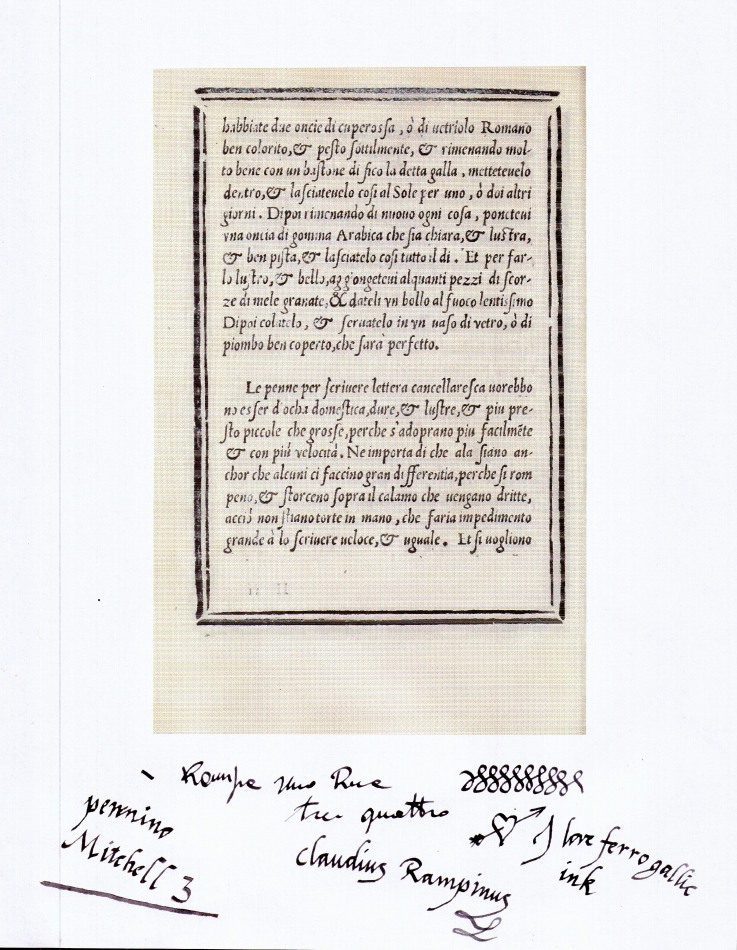 habbiate due oncie di cuperossa, ò di uetriolo Romano
ben colorito, & pesto sottilmente, & rimenando mol-
to bene con un bastone di fico la detta galla, metteteuelo
dentro, & lasciateuelo cosi al Sole per uno, ò doi altri
giorni. Dipoi rimenando di nuouo ogni cosa, poneteui
vna oncia di gomma Arabica che sia chiara, & lustra,
& ben pista, & lasciatelo cosi tutto il di. Et per far-
lo lustro, & bello, aggiongeteui alquanti pezzi di scor-
ze di mele granate, & dateli vn bollo al fuoco lentissimo
Dipoi colatelo, & seruatelo in vn uaso di vetro, ò di
piombo ben coperto, che sarà perfetto.
Le penne per scriuere lettera cancellaresca uorebbo
no esser d'ocha domestica, dure, & lustre, & piu pre-
sto piccole che grosse, perche s'adoprano piu facilmēte
& con più velocità. Ne importa di che ala siano an-
chor che alcuni ci faccino gran differentia, perche si rom
peno, & storceno sopra il calamo che uengano dritte,
acciò non stiano torte in mano, che faria impedimento
grande à lo scriuere ueloce, & uguale. Et si uogliono
tre quattro
pennino
Mitchell 3
Claudius Rampinus
I love ferrogallic
ink